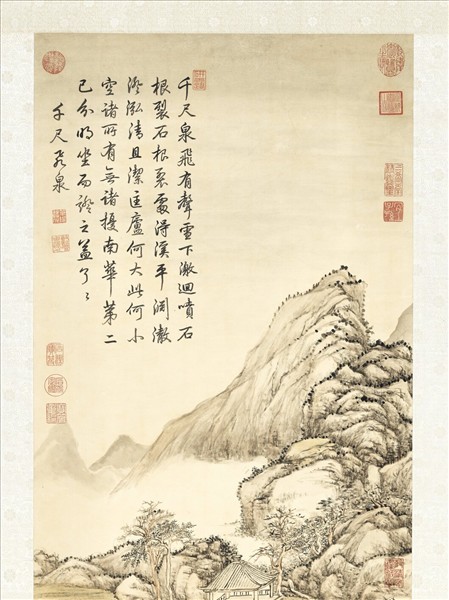 千尺泉飛有聲雪下激迴噴石
根裂石根裂處得溪平洞澈
澄泓清且潔匡廬何大此何小
空諸所有無諸擾南華第二
已分明坐而證之蓋了々
千尺飛泉